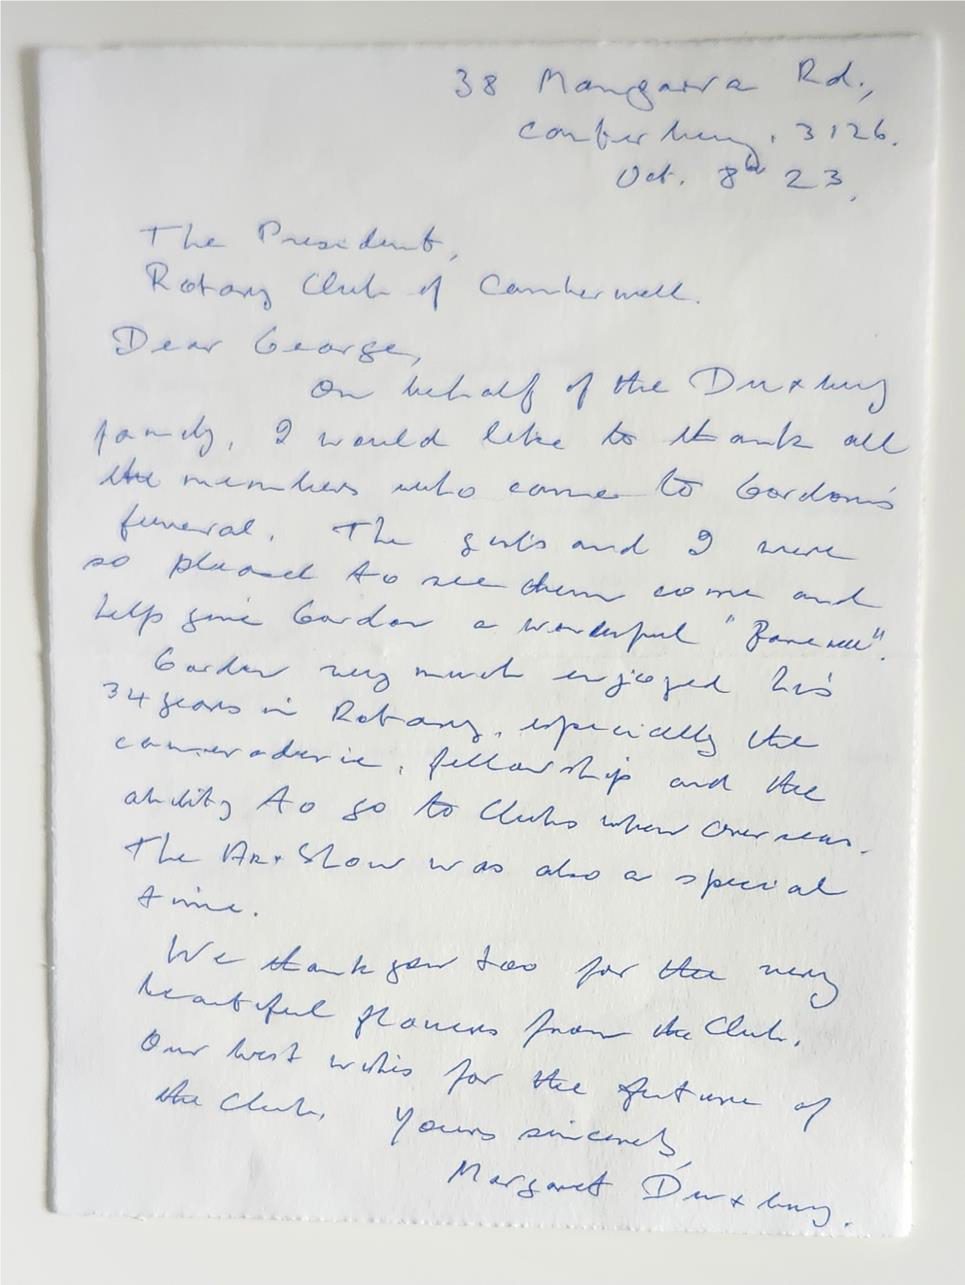 38 Mangarra Rd.,
Canterbury. 3126.
Oct. 8th 23.
The President,
Rotary Club of Camberwell.
Dear George,
On behalf of the Duxbury
family, I would like to thank all
the members who came to Gordon's
funeral. The girls and I were
so pleased to see them come and
help give Gordon a wonderful "Farewell".
Gordon very much enjoyed his
34 years in Rotary, especially the
camaraderie, fellowship and the
ability to go to Clubs when overseas.
The Art Show was also a special
time.
We thank you too for the very
beautiful flowers from the Club.
Our best wishes for the future of
the Club. Yours sincerely,
Margaret Duxbury.